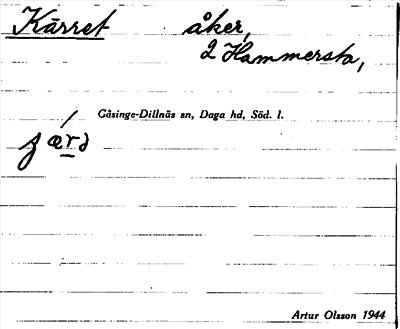 Kärret åker,
2 Hammersta,
Gåsinge-Dillnäs sn, Daga hd, Söd. l.
Artur Olsson 1944